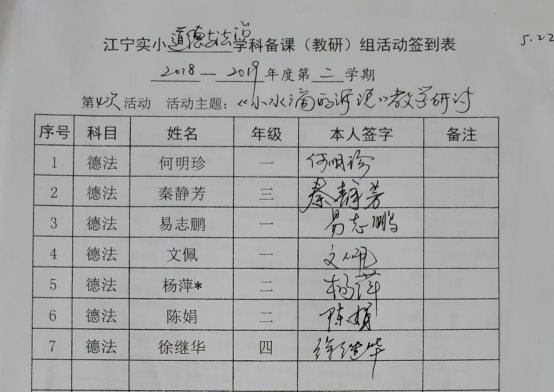 江宁实小道德与法治学科备课（教研）组活动签到表
5.22
2018—2019年度第二学期
第4次活动 活动主题：《小水滴的诉说》教学研讨
序号 科目 姓名 年级 本人签字 备注
1 德法 何明珍 一 何明珍
2 德法 秦静芳 三 秦静芳
3 德法 易志鹏 一 易志鹏
4 德法 文佩 一 文佩
5 德法 杨萍* 二 杨萍
6 德法 陈娟 二 陈娟
7 德法 徐继华 四 徐继华